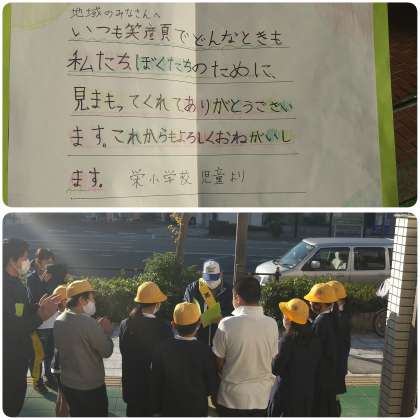 地域のみなさんへ
いつも笑顔でどんなときも
私たち、ぼくたちのために、
見まもってくれてありがとうござい
ます。これからもよろしくおねがいし
ます。 栄小学校 児童より